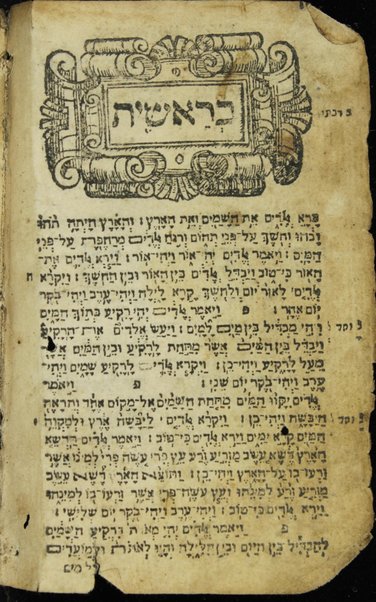 בראשית
ב רבתי
ברא אלדים את השמים ואת הארץ: והארץ היתה תהו
ובהו וחשך על־פני תהום ורוח אלדים מרחפת על־פני
המים: ויאמר אלדים יהי אור ויהי־אור: וירא אלדים את־
האור כי־טוב ויבדל אלדים בין האור ובין החשך: ויקרא
אלדים לאור יום ולחשך קרא לילה ויהי־ערב ויהי־בקר
יום אחד: פ ויאמר אלדים יהי רקיע בתוך המים
ויהי מבדיל בין מים למים: ויעש אלדים את־הרקיע
ויבדל בין המים אשר מתחת לרקיע ובין המים אשר
מעל לרקיע ויהי־כן: ויקרא אלדים לרקיע שמים ויהי־
ערב ויהי־בקר יום שני: פ ויאמר
אלדים יקוו המים מתחת השמים אל־מקום אחד ותראה
היבשה ויהי־כן: ויקרא אלדים ליבשה ארץ ולמקוה
המים קרא ימים וירא אלדים כי־טוב: ויאמר אלדים תדשא
הארץ דשא עשב מזריע זרע עץ פרי עשה פרי למינו אשר
זרעו־בו על־הארץ ויהי־כן: ותוצא הארץ דשא עשב
מזריע זרע למינהו ועץ עשה־פרי אשר זרעו־בו למינהו
וירא אלדים כי־טוב: ויהי־ערב ויהי־בקר יום שלישי:
פ ויאמר אלדים יהי מארת ברקיע השמים
להבדיל בין היום ובין הלילה והיו לאתת ולמועדים